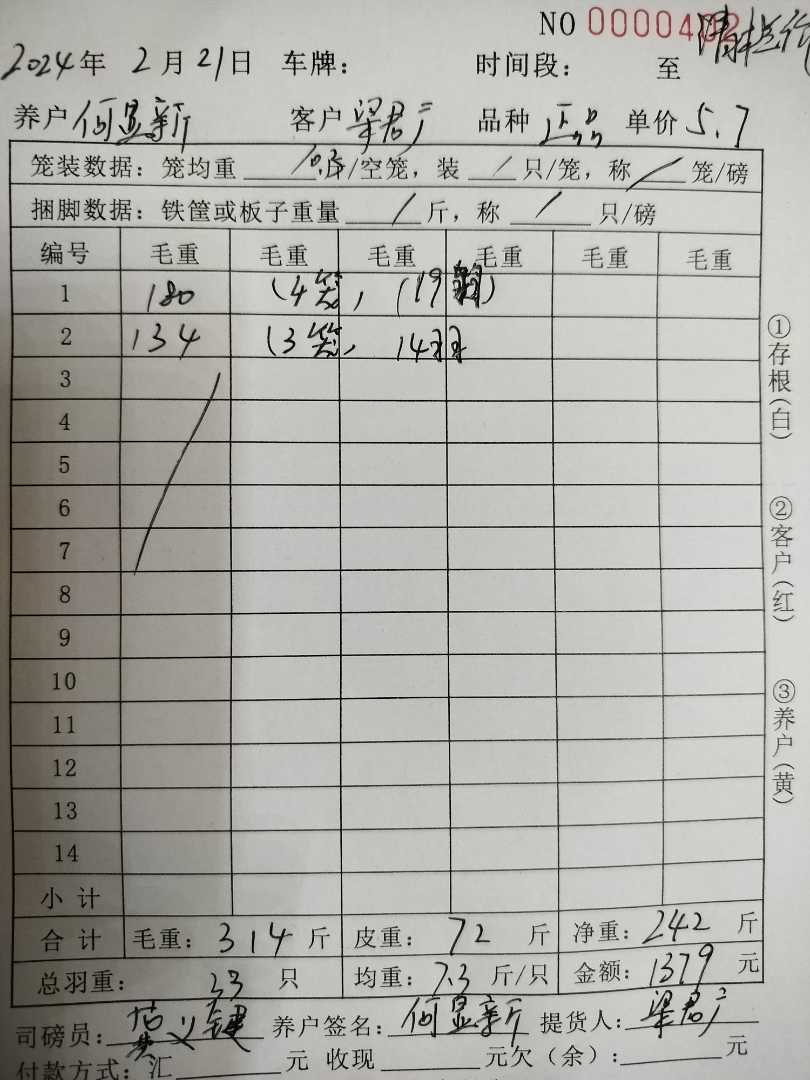 NO 0000402
2024年 2月21日 车牌： 时间段： 至
养户 何显新 客户 梁君广 品种 正品 单价 5.7
笼装数据：笼均重 /空笼，装 / 只/笼，称 / 笼/磅
捆脚数据：铁筐或板子重量 / 斤，称 / 只/磅
编号 毛重 毛重 毛重 毛重 毛重 毛重
1 180 (4笼, (19 )
2 134 (3笼, 14羽
3
4
5
6
7
8
9
10
11
12
13
14
小 计
合 计 毛重：314 斤 皮重：72 斤 净重：242 斤
总羽重： 33 只 均重：7.3 斤/只 金额：1379 元
司磅员： 义键 养户签名：何显新 提货人：梁君广
付款方式：汇 元 收现 元欠（余）： 元
①存根（白）
②客户（红）
③养户（黄）